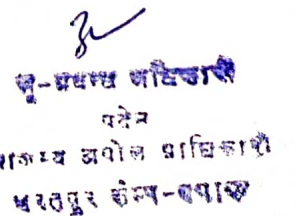 भू-प्रबन्ध अधिकारी
पदेन
राजस्व अपील प्राधिकारी
भरतपुर कैम्प-बयाना